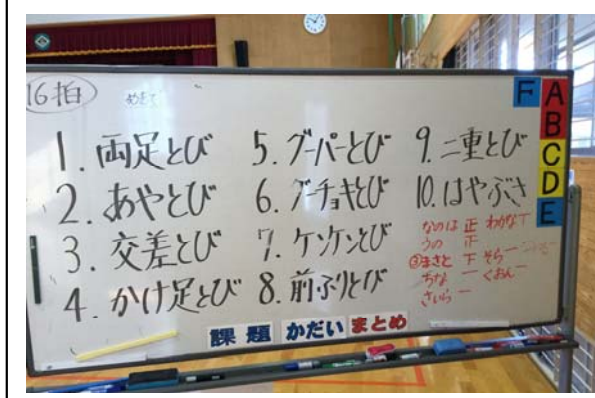 16拍
めあて
1. 両足とび
2. あやとび
3. 交差とび
4. かけ足とび
5. グーパーとび
6. グーチョキとび
7. ケンケンとび
8. 前ふりとび
9. 二重とび
10. はやぶさ
なのは 正 わかな T
うの 正
③まさと 下 そら 一
ちな 一 くおん 一
さいら 一
課題 かだい まとめ
F
A
B
C
D
E